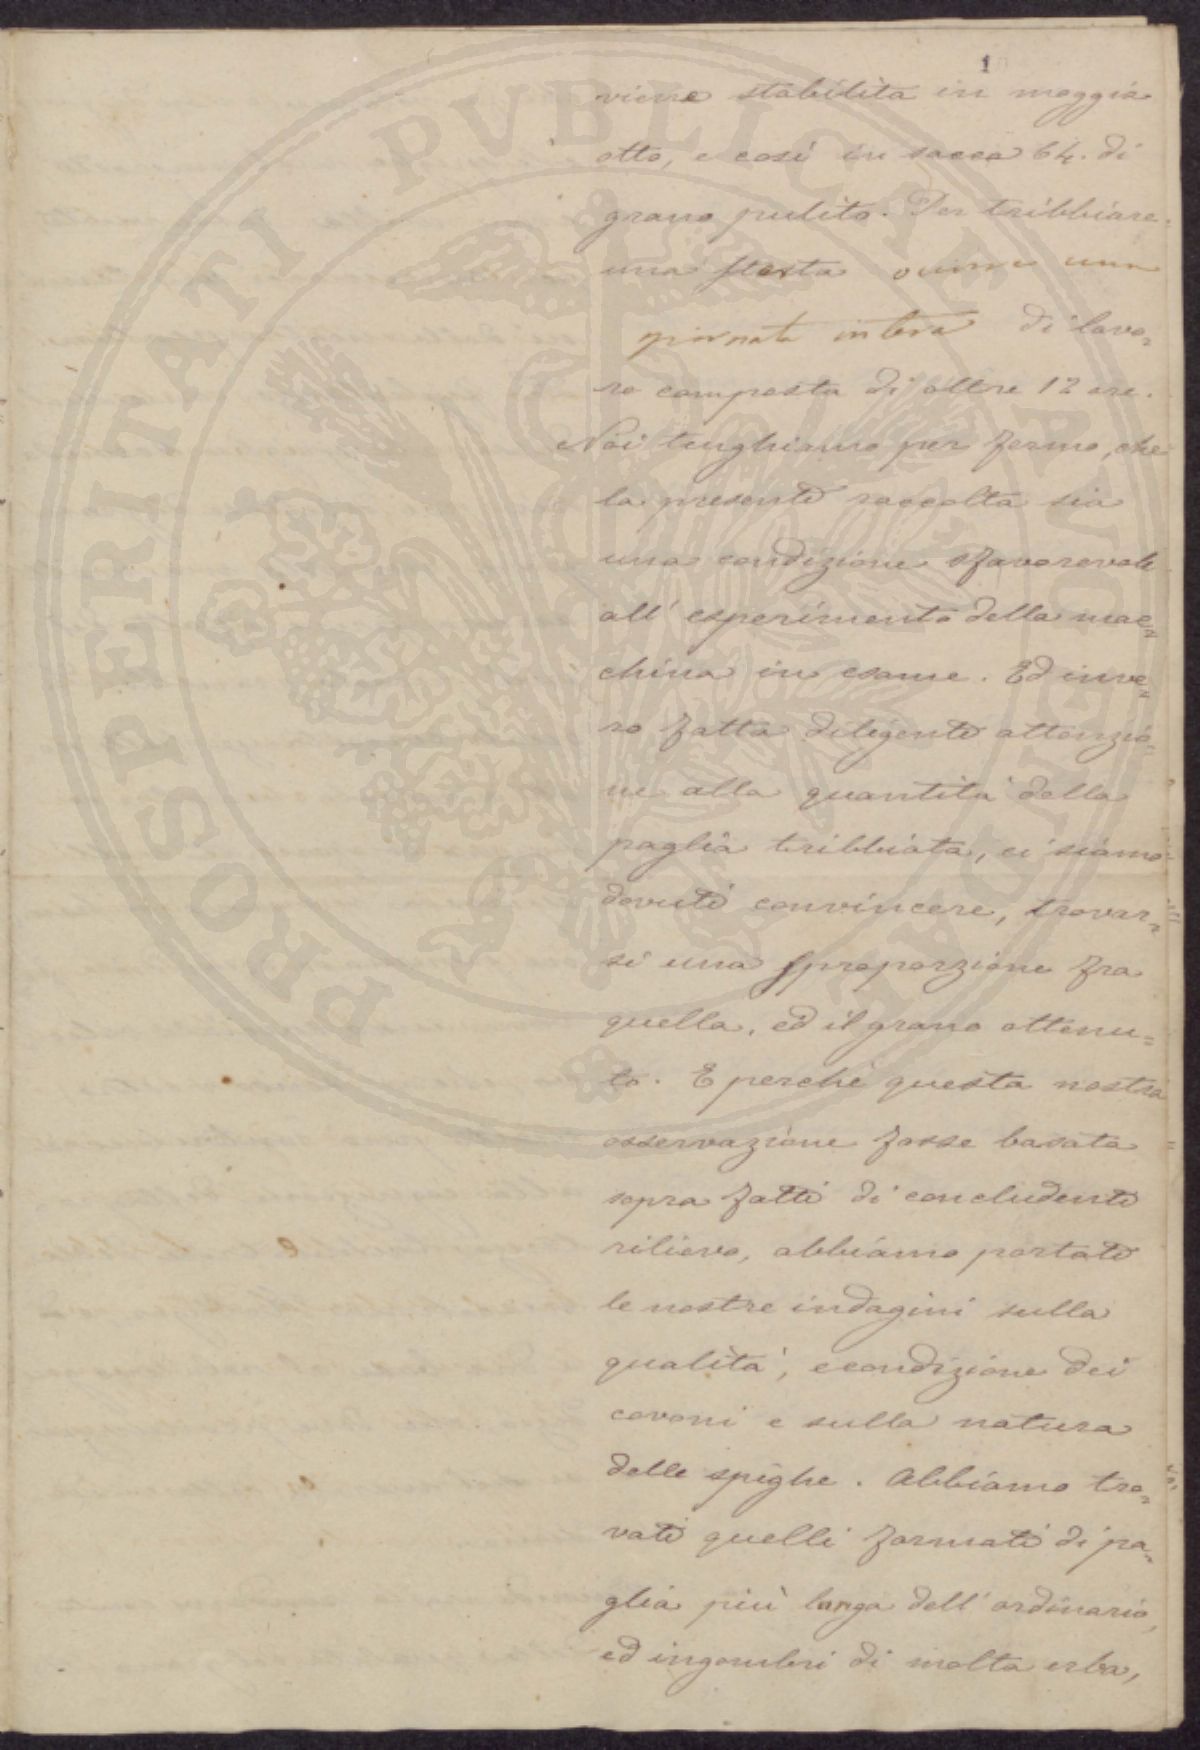 1
viene stabilita in moggia
otto, e così in sacca 64. di
grano pulito. Per tribbiare
una stesta
giornata intera di lavo=
ro composta di oltre 12 ore.
Noi tenghiamo per fermo, che
la presente raccolta sia
una condizione sfavorevole
all' esperimento della mac=
china in esame. Ed inve=
ro fatta diligente attenzio=
ne alla quantità della
paglia tribbiata, ci siamo
dovuti convincere, trovar=
si una sproporzione fra
quella, ed il grano ottenu=
to. E perché questa nostra
osservazione fosse basata
sopra fatti di concludente
rilievo, abbiamo portate
le nostre indagini sulla
qualità, e condizione dei
covoni e sulla natura
delle spighe. Abbiamo tro=
vati quelli formati di pa=
glia più lunga dell' ordinario,
ed ingombri di molta erba,
PROSPERITATI PUBLICAE AUGENDAE